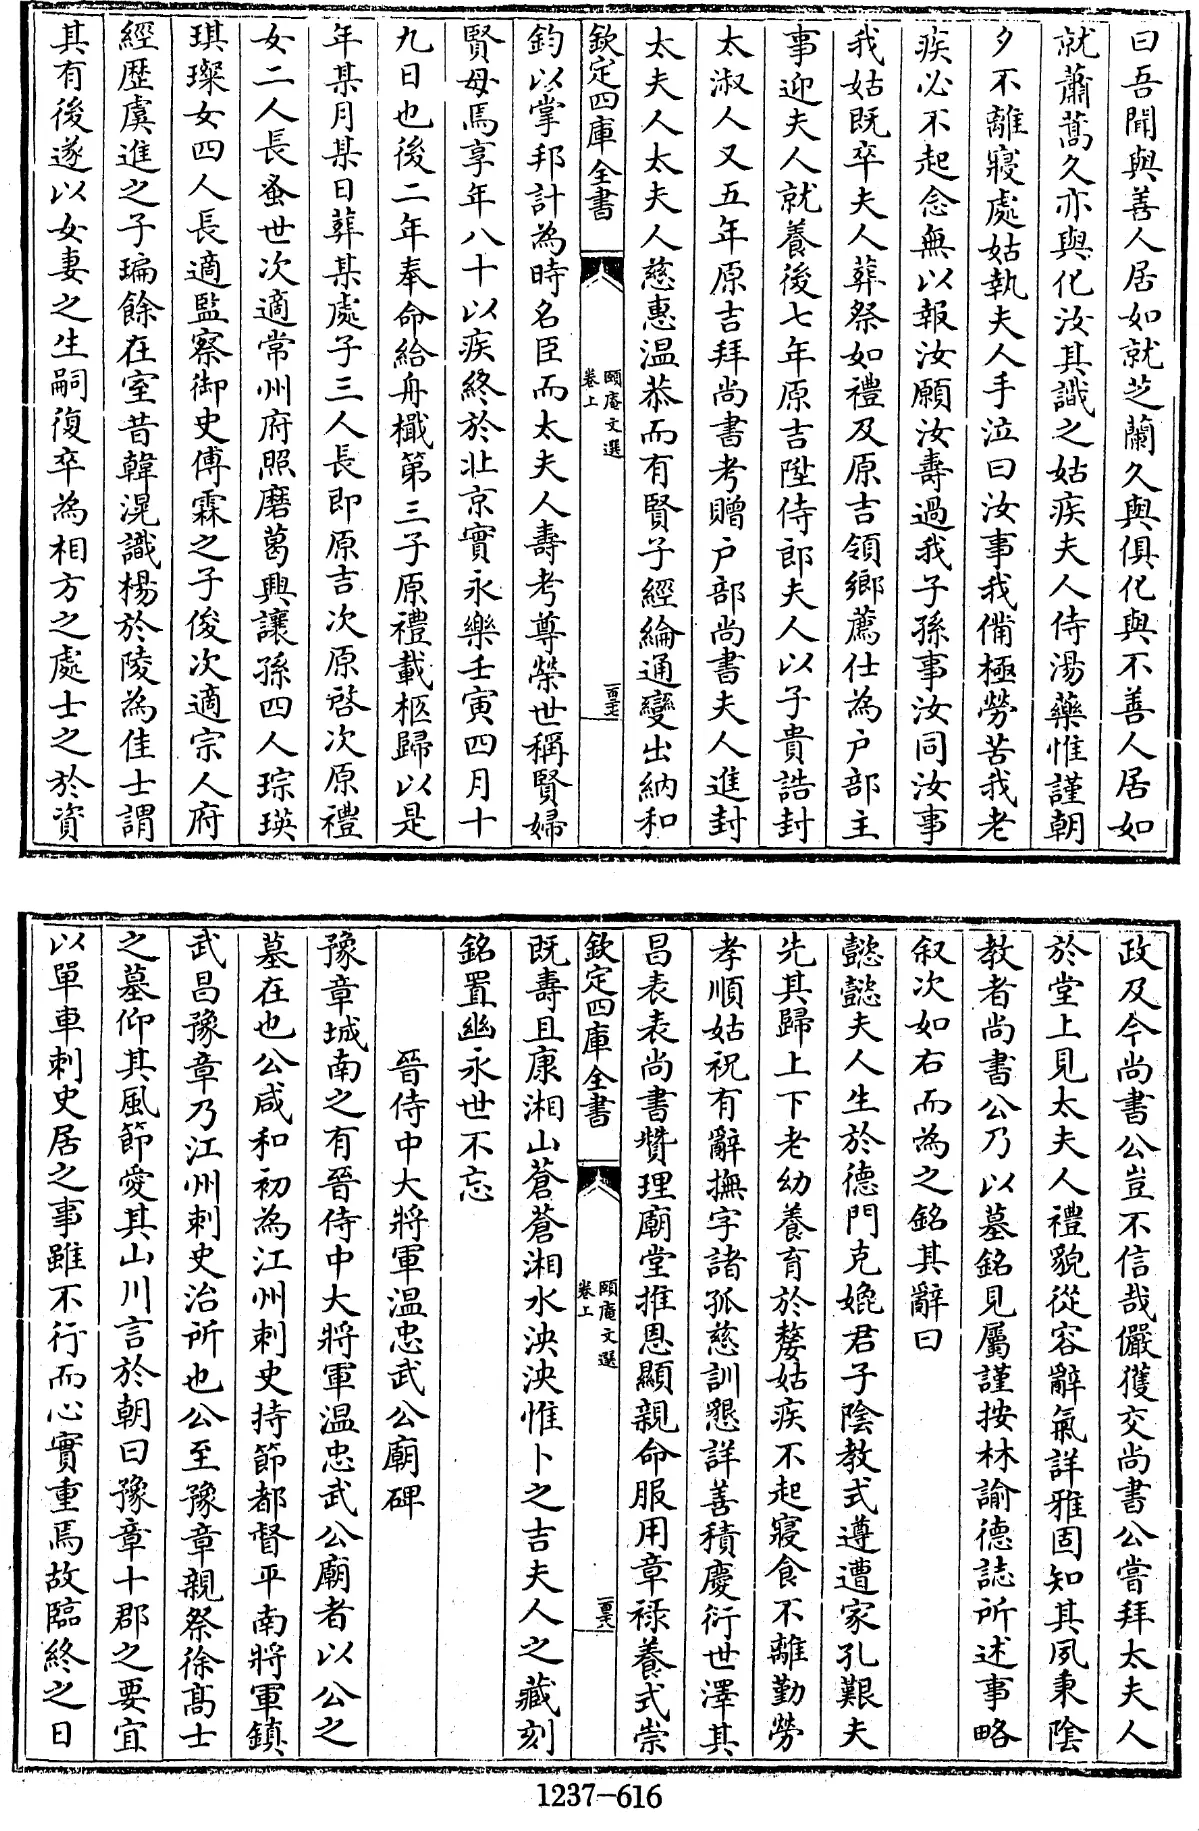 曰吾聞與善人居如就芝蘭久與俱化與不善人居如
就蕭蒿久亦與化汝其識之姑疾夫人侍湯藥惟謹朝
夕不離寢處姑執夫人手泣曰汝事我備極勞苦我老
疾必不起念無以報汝願汝壽過我子孫事汝同汝事
我姑既卒夫人葬祭如禮及原吉領鄉薦仕為户部主
事迎夫人就養後七年原吉陞侍郎夫人以子貴誥封
太淑人又五年原吉拜尚書考贈户部尚書夫人進封
太夫人太夫人慈惠温恭而有賢子經綸通變出納和
欽定四庫全書
頤庵文選
卷上
一百三七
鈞以掌邦計為時名臣而太夫人壽考尊榮世稱賢婦
賢母焉享年八十以疾終於北京實永樂壬寅四月十
九日也後二年奉命給舟檝第三子原禮載柩歸以是
年某月某日葬某處子三人長即原吉次原啓次原禮
女二人長蚤世次適常州府照磨葛興讓孫四人琮瑛
琪璨女四人長適監察御史傅霖之子俊次適宗人府
經歷虞進之子㻞餘在室昔韓滉識楊於陵為佳士謂
其有後遂以女妻之生嗣復卒為相方之處士之於資
政及今尚書公豈不信哉儼獲交尚書公嘗拜太夫人
於堂上見太夫人禮貌從容辭氣詳雅固知其夙秉陰
教者尚書公乃以墓銘見屬謹按林諭德誌所述事略
叙次如右而為之銘其辭曰
懿懿夫人生於德門克媲君子陰教式遵遭家孔艱夫
先其歸上下老幼養育於嫠姑疾不起寢食不離勤勞
孝順姑祝有辭撫字諸孤慈訓懇詳善積慶衍世澤其
昌表表尚書贊理廟堂推恩顯親命服用章祿養式崇
欽定四庫全書
頤庵文選
卷上
一百三六
既壽且康湘山蒼蒼湘水泱泱惟卜之吉夫人之藏刻
銘置幽永世不忘
晉侍中大將軍温忠武公廟碑
豫章城南之有晉侍中大將軍温忠武公廟者以公之
墓在也公咸和初為江州刺史持節都督平南將軍鎮
武昌豫章乃江州刺史治所也公至豫章親祭徐高士
之墓仰其風節愛其山川言於朝曰豫章十郡之要宜
以單車刺史居之事雖不行而心實重焉故臨終之日
1237-616